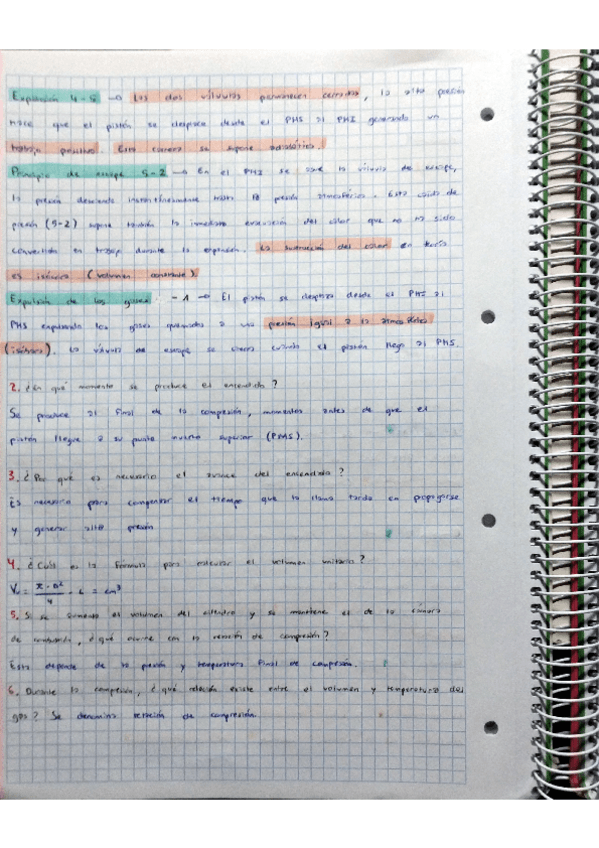 Expansión 4-5 → Las dos válvulas permanecen cerradas, la alta presión
hace que el pistón se desplace desde el PMS al PMI generando un
trabajo positivo. Esta carrera se supone adiabática.
Principio de escape 5-2 → En el PMI se abre la válvula de escape,
la presión desciende instantáneamente hasta la presión atmosférica. Esta caida de
presión (5-2) supone también la inmediata evacuación del calor que no ha sido
convertido en trabajo durante la expansión. La sustracción del calor en teoría
es isócora (volumen constante).
Expulsión de los gases - 1 → El pistón se desplaza desde el PMI al
PMS expulsando los gases quemados a una presión igual a la atmosférica
(isóbara). La válvula de escape se cierra cuando el pistón llega al PMS.
2. ¿En qué momento se produce el encendido?
Se produce al final de la compresión, momentos antes de que el
pistón llegue a su punto muerto superior (PMS).
3. ¿Por qué es necesario el avance del encendido?
Es necesario para compensar el tiempo que la llama tarda en propagarse
y generar alta presión
4. ¿Cuál es la fórmula para calcular el volumen unitario?
Vu = π · D² / 4 · L = cm³
5. Si se aumenta el volumen del cilindro y se mantiene el de la cámara
de combustión, ¿qué ocurre con la relación de compresión?
Esta depende de la presión y temperatura final de compresión.
6. Durante la compresión, ¿qué relación existe entre el volumen y temperatura del
gas? Se denomina relación de compresión.